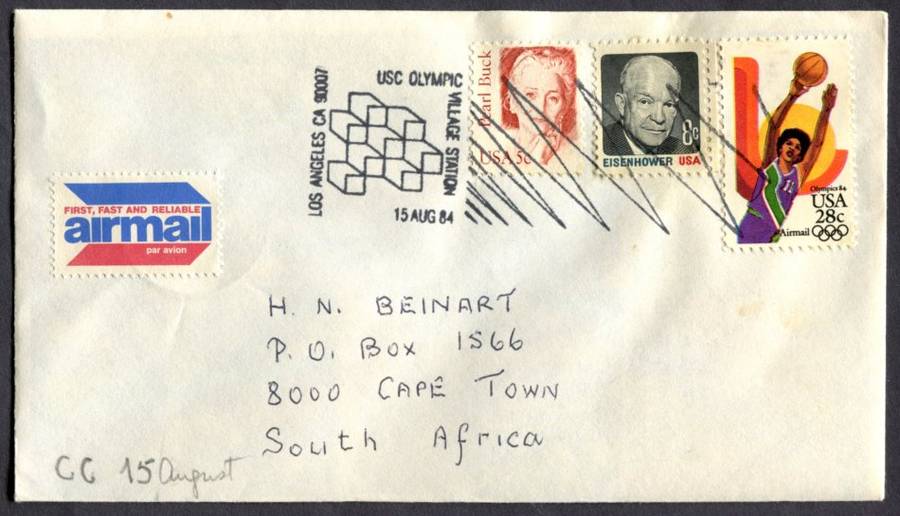 LOS ANGELES CA 90007
USC OLYMPIC VILLAGE STATION
15 AUG 84
Pearl Buck
USA 5c
8c
EISENHOWER USA
11
Olympics 84
USA
28c
Airmail
FIRST, FAST AND RELIABLE
airmail
par avion
H. N. BEINART
P. O. Box 1566
8000 CAPE TOWN
South Africa
CC 15 August